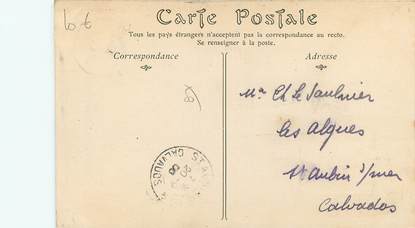 10 €
Carte Postale
Tous les pays étrangers n'acceptent pas la correspondance au recto.
Se renseigner à la poste.
Correspondance
Adresse
Ch Le Saulnier
Les Algues
St Aubin s/mer
Calvados
CALVADOS